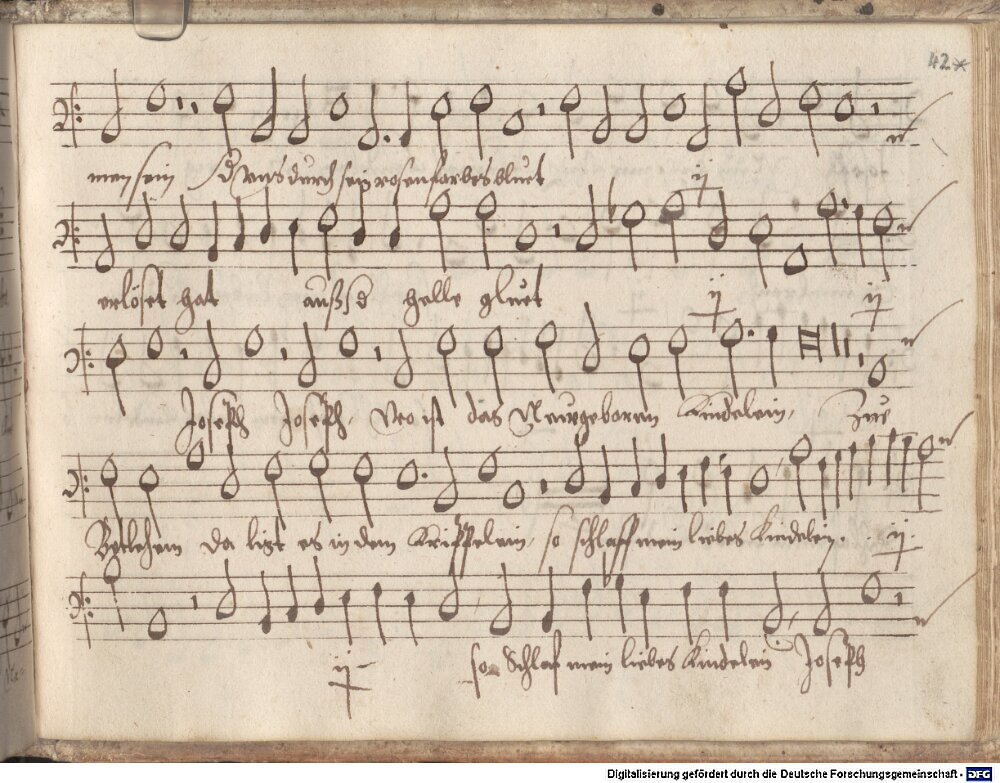 42*
men sein d uns durch sein rosenfarbes bluet ij
erlöset hat auß d helle gluet ij ij
Joseph Joseph, wo ist das Neugeboren Kindelein, Zue
Betlehem da ligt es in dem Krippelein, so schlaff mein liebes Kindelein. ij.
ij so Schlaf mein liebes Kindelein Joseph
Digitalisierung gefördert durch die Deutsche Forschungsgemeinschaft - DFG